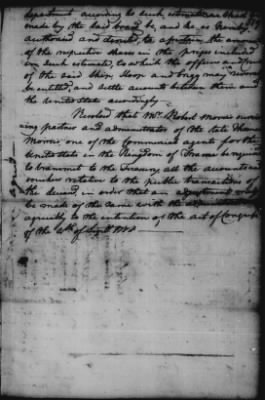 made by the said board, be, and he is hereby
authorised and directed, to apportion the amount
of the respective shares in the prizes included
in such estimate, to which the officers and crews
of the said Ships, Sloop and brigg may
be entitled, and settle accounts between them and
the United States accordingly.
Resolved that Mr. Robert Morris surviv
ing partner and administrator of the late Thomas
Morris one of the Commercial agents for the
United States in the Kingdom of France be required
to transmit to the treasury all the accounts and
vouchers relative to the public transactions of
the deceased, in order that an adjustment may
be made of the same with the
agreeably to the intention of the act of Congress
of the